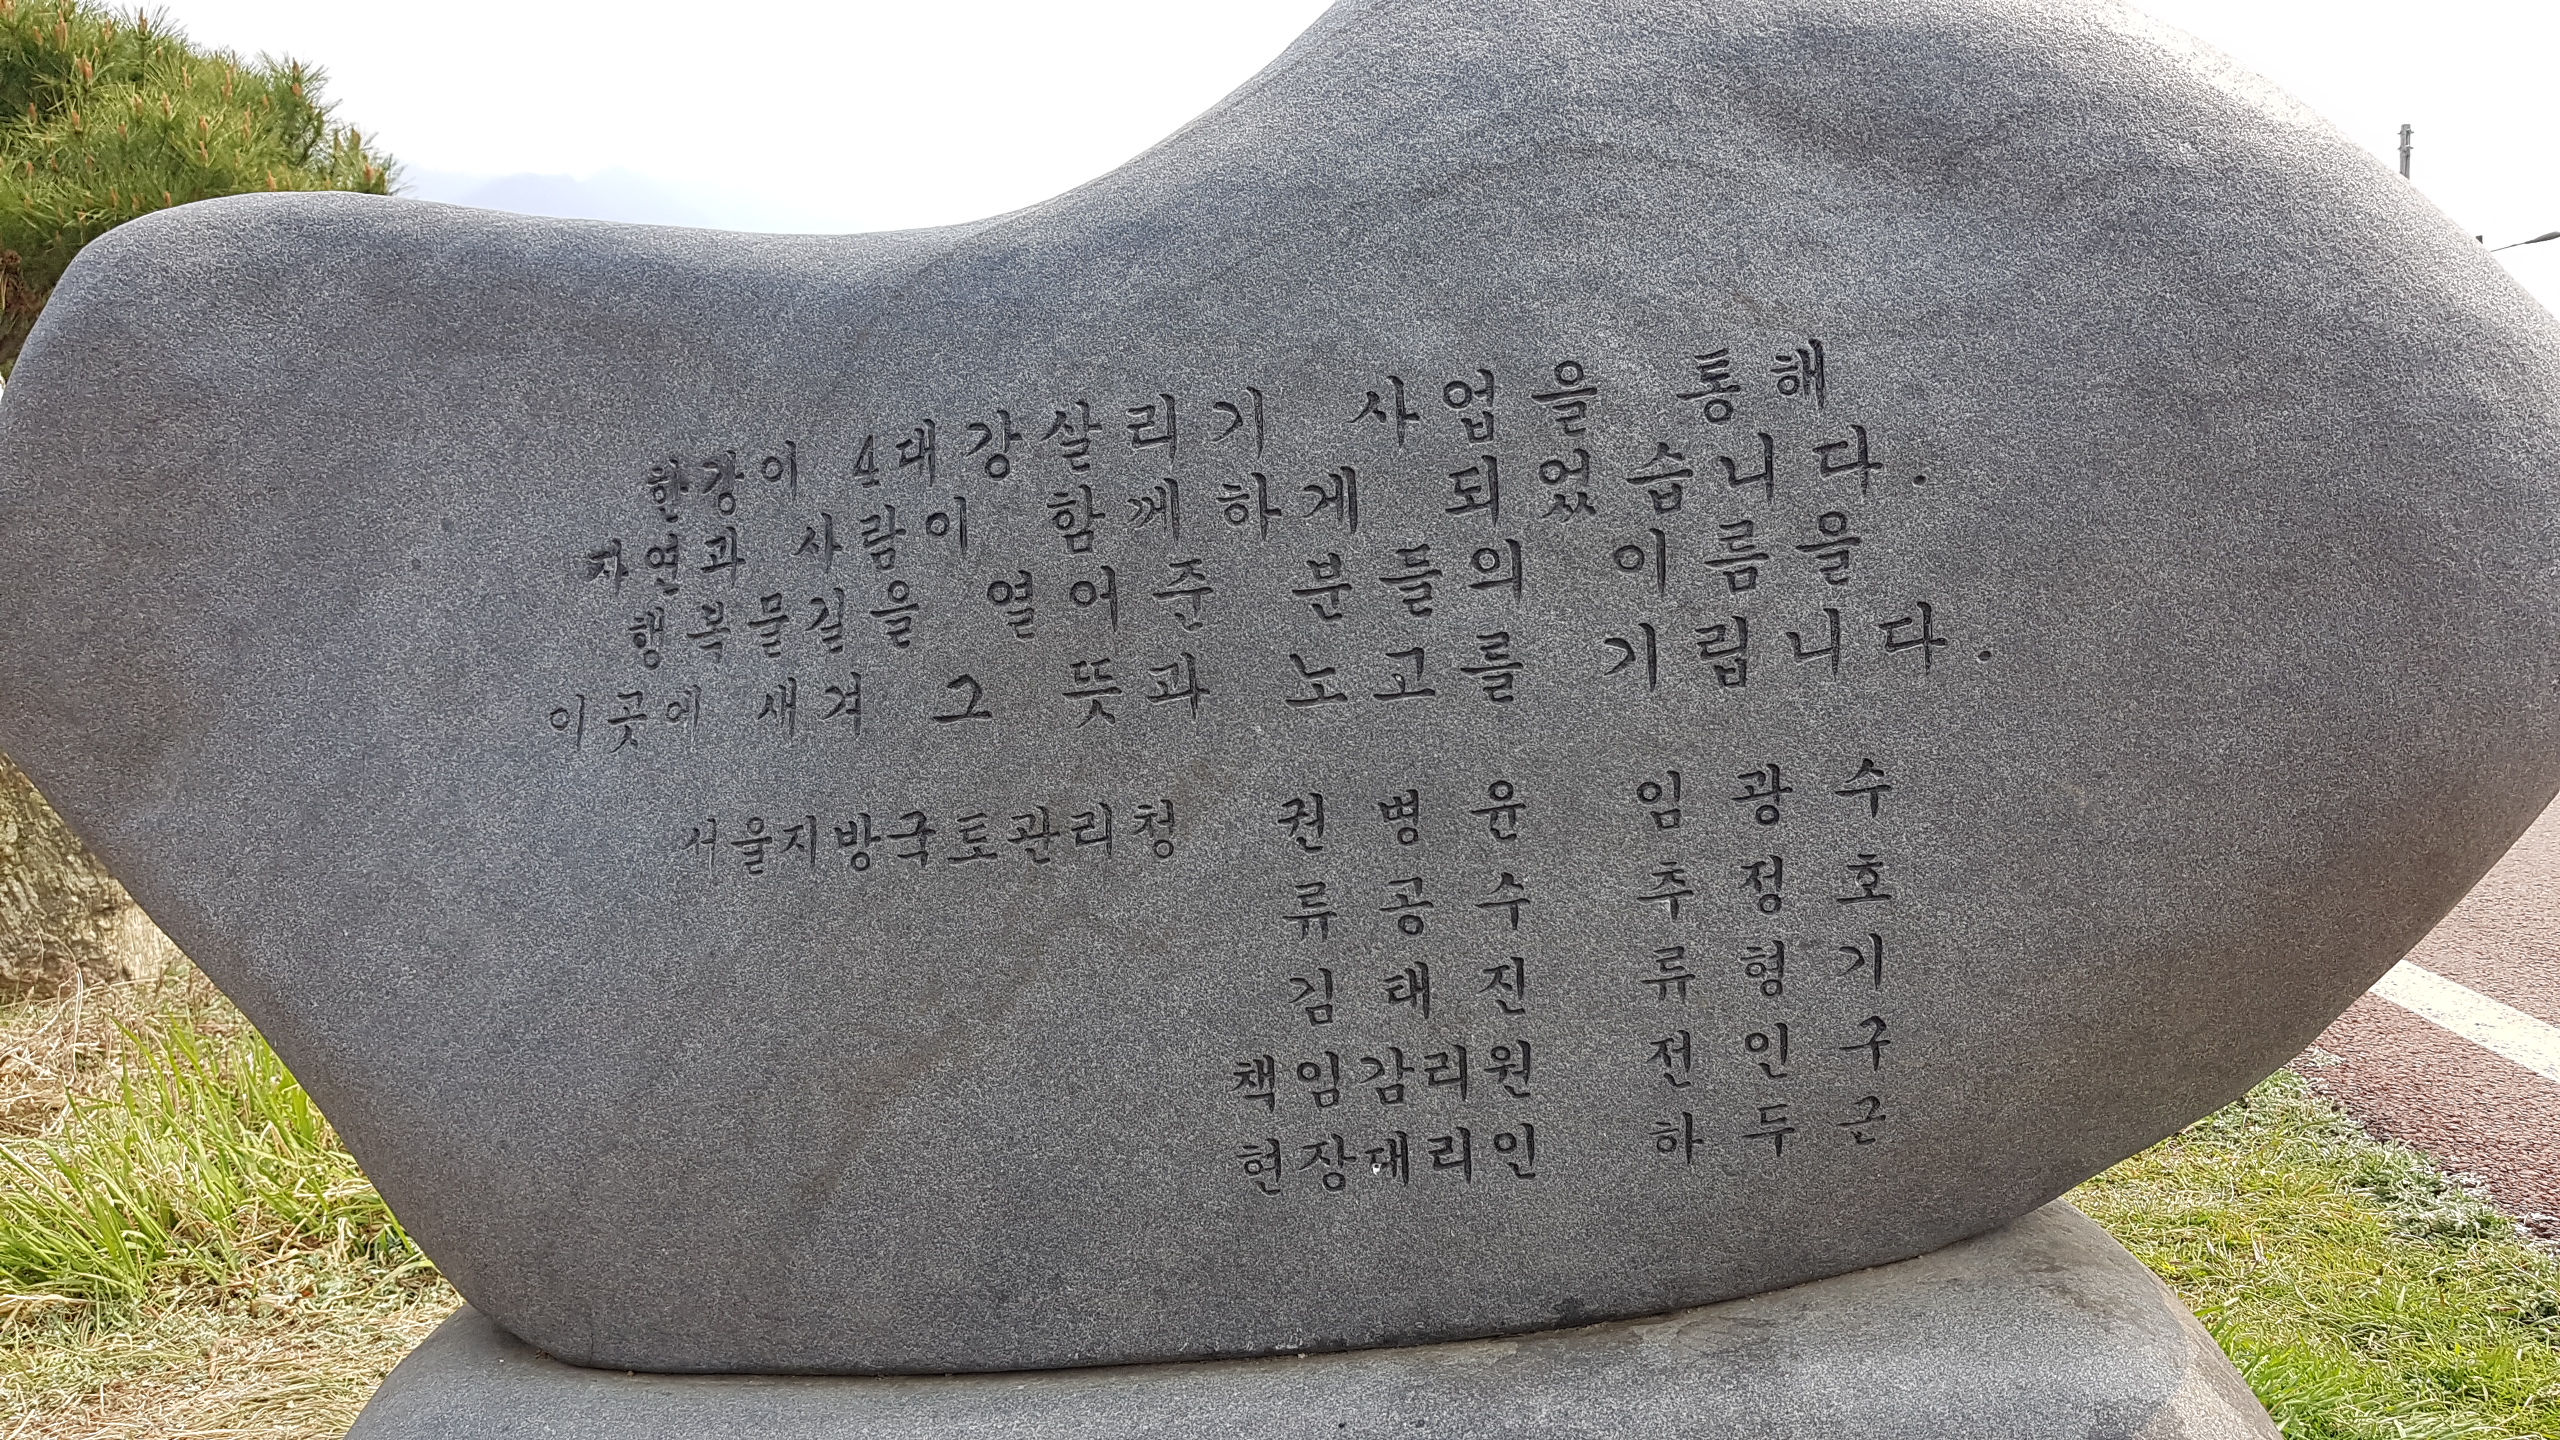 한강이 4대강살리기 사업을 통해
자연과 사람이 함께하게 되었습니다.
행복물길을 열어준 분들의 이름을
이곳에 새겨 그 뜻과 노고를 기립니다.
서울지방국토관리청 권병윤 임광수
류공수 추정호
김태진 류형기
책임감리원 전인구
현장대리인 하두근